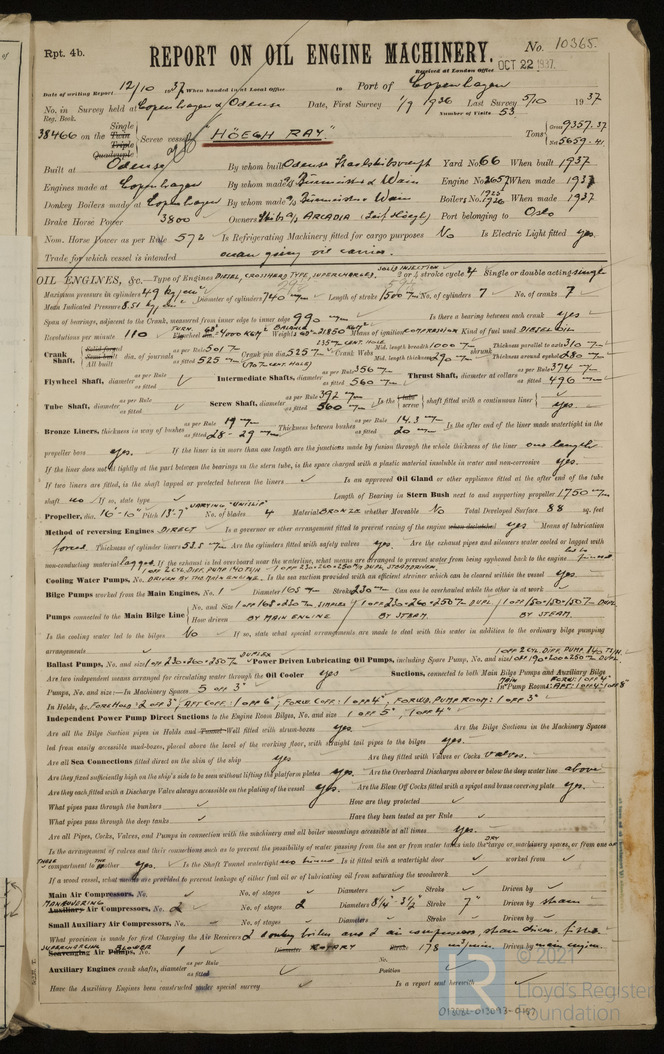 Rpt. 4b.
REPORT ON OIL ENGINE MACHINERY.
No. 10365.
Received at London Office OCT 22 1937
Date of writing Report 12/10 1937 When handed in at Local Office 19 Port of Copenhagen
No. in Survey held at Copenhagen & Odense Date, First Survey 1/9 1936 Last Survey 5/10 1937
Reg. Book. Number of Visits 53
38466 on the Single Twin Triple Quadruple Screw vessel "HÖEGH RAY" Tons Gross 9357.37 Net 5659.41
Built at Odense By whom built Odense Staalskibsværft Yard No. 66 When built 1937
Engines made at Copenhagen By whom made A/S Burmeister & Wain Engine No. 2657 When made 1937
Donkey Boilers made at Copenhagen By whom made A/S Burmeister & Wain Boiler No. 1925 1926 When made 1937
Brake Horse Power 3800 Owners Skibs A/S ARCADIA (Leif Höegh) Port belonging to Oslo
Nom. Horse Power as per Rule 572 Is Refrigerating Machinery fitted for cargo purposes No Is Electric Light fitted yes.
Trade for which vessel is intended ocean going oil carrier.
OIL ENGINES, &c.—Type of Engines DIESEL, CROSSHEAD TYPE, SUPERCHARGED, SOLID INJECTION 2 or 4 stroke cycle 4 Single or double acting single
Maximum pressure in cylinders 49 kg/cm² Diameter of cylinders 740 m/m Length of stroke 1500 m/m No. of cylinders 7 No. of cranks 7
Mean Indicated Pressure 8.51 kg/cm²
Span of bearings, adjacent to the Crank, measured from inner edge to inner edge 990 m/m Is there a bearing between each crank yes
Revolutions per minute 110 Means of ignition COMPRESSION Kind of fuel used DIESEL OIL
Crank Shaft, Solid forged Semi built All built dia. of journals as per Rule 501 m/m as fitted 525 m/m Crank pin dia. 525 m/m Crank Webs Mid. length breadth 1000 m/m Mid. length thickness 290 m/m shrunk Thickness parallel to axis 310 m/m Thickness around eyehole 280 m/m
Flywheel Shaft, diameter as per Rule as fitted Intermediate Shafts, diameter as per Rule 356 m/m as fitted 560 m/m Thrust Shaft, diameter at collars as per Rule 374 m/m as fitted 496 m/m
Tube Shaft, diameter as per Rule as fitted Screw Shaft, diameter as per Rule 392 m/m as fitted 560 m/m Is the tube screw shaft fitted with a continuous liner yes.
Bronze Liners, thickness in way of bushes as per Rule 19 m/m as fitted 28-29 m/m Thickness between bushes as per Rule 14.3 m/m as fitted 20 m/m Is the after end of the liner made watertight in the
propeller boss yes. If the liner is in more than one length are the junctions made by fusion through the whole thickness of the liner one length
If the liner does not fit tightly at the part between the bearings in the stern tube, is the space charged with a plastic material insoluble in water and non-corrosive yes.
If two liners are fitted, is the shaft lapped or protected between the liners Is an approved Oil Gland or other appliance fitted at the after end of the tube
shaft no If so, state type Length of Bearing in Stern Bush next to and supporting propeller 1750 m/m
Propeller, dia. 16'-10" Pitch 13'-7" No. of blades 4 Material BRONZE whether Moveable No Total Developed Surface 88 sq. feet
Method of reversing Engines DIRECT Is a governor or other arrangement fitted to prevent racing of the engine when declutched yes Means of lubrication
forced Thickness of cylinder liners 53.5 m/m Are the cylinders fitted with safety valves yes Are the exhaust pipes and silencers water cooled or lagged with
non-conducting material lagged If the exhaust is led overboard near the waterline, what means are arranged to prevent water being syphoned back to the engine
Cooling Water Pumps, No. Is the sea suction provided with an efficient strainer which can be cleared within the vessel yes.
Bilge Pumps worked from the Main Engines, No. 1 Diameter 165 m/m Stroke 230 m/m Can one be overhauled while the other is at work
Pumps connected to the Main Bilge Line No. and Size 1 off 165×230 m/m SIMPLEX / 1 off 230×260×250 m/m DUPL. / 1 off 150×150×150 m/m DUPL.
How driven BY MAIN ENGINE / BY STEAM. / BY STEAM.
Is the cooling water led to the bilges No If so, state what special arrangements are made to deal with this water in addition to the ordinary bilge pumping
arrangements
Ballast Pumps, No. and size 1 off 230×200×250 m/m DUPLEX Power Driven Lubricating Oil Pumps, including Spare Pump, No. and size 1 off 2 CYL. DIFF. PUMP 140 m/m 1 off 190×200×250 m/m DUPL.
Are two independent means arranged for circulating water through the Oil Cooler yes Suctions, connected to both Main Bilge Pumps and Auxiliary Bilge
Pumps, No. and size:—In Machinery Spaces 5 off 3" In Pump Room
In Holds, &c. FOREHOLD: 2 off 3"; AFT. COFF: 1 off 6"; FORW. COFF: 1 off 4"; FORWD. PUMP ROOM: 1 off 3"
Independent Power Pump Direct Suctions to the Engine Room Bilges, No. and size 1 off 5", 1 off 4"
Are all the Bilge Suction pipes in Holds and Tunnel Well fitted with strum-boxes yes. Are the Bilge Suctions in the Machinery Spaces
led from easily accessible mud-boxes, placed above the level of the working floor, with straight tail pipes to the bilges yes.
Are all Sea Connections fitted direct on the skin of the ship yes Are they fitted with Valves or Cocks valves.
Are they fixed sufficiently high on the ship's side to be seen without lifting the platform plates yes. Are the Overboard Discharges above or below the deep water line above
Are they each fitted with a Discharge Valve always accessible on the plating of the vessel yes. Are the Blow Off Cocks fitted with a spigot and brass covering plate yes.
What pipes pass through the bunkers How are they protected
What pipes pass through the deep tanks Have they been tested as per Rule
Are all Pipes, Cocks, Valves, and Pumps in connection with the machinery and all boiler mountings accessible at all times yes.
Is the arrangement of valves and their connections such as to prevent the possibility of water passing from the sea or from water tanks into the cargo or DRY machinery spaces, or from one
compartment to the other yes. Is the Shaft Tunnel watertight no tunnel Is it fitted with a watertight door worked from
If a wood vessel, what means are provided to prevent leakage of either fuel oil or lubricating oil from saturating the woodwork
Main Air Compressors, No. No. of stages Diameters Stroke Driven by
MANŒUVERING Auxiliary Air Compressors, No. 2 No. of stages 2 Diameters 8¼"-3½" Stroke 7" Driven by steam
Small Auxiliary Air Compressors, No. No. of stages Diameters Stroke Driven by
What provision is made for first Charging the Air Receivers 2 donkey boilers and 2 air compressors, steam driven, fitted.
SUPERCHARGING BLOWER Scavenging Air Pumps, No. 1 Diameter ROTARY Stroke 178 m³/min. Driven by main engine.
Auxiliary Engines crank shafts, diameter as per Rule as fitted No. Position
Have the Auxiliary Engines been constructed under special survey. Is a report sent herewith
© 2021
Lloyd's Register
Foundation
LR
013082-013093-0157